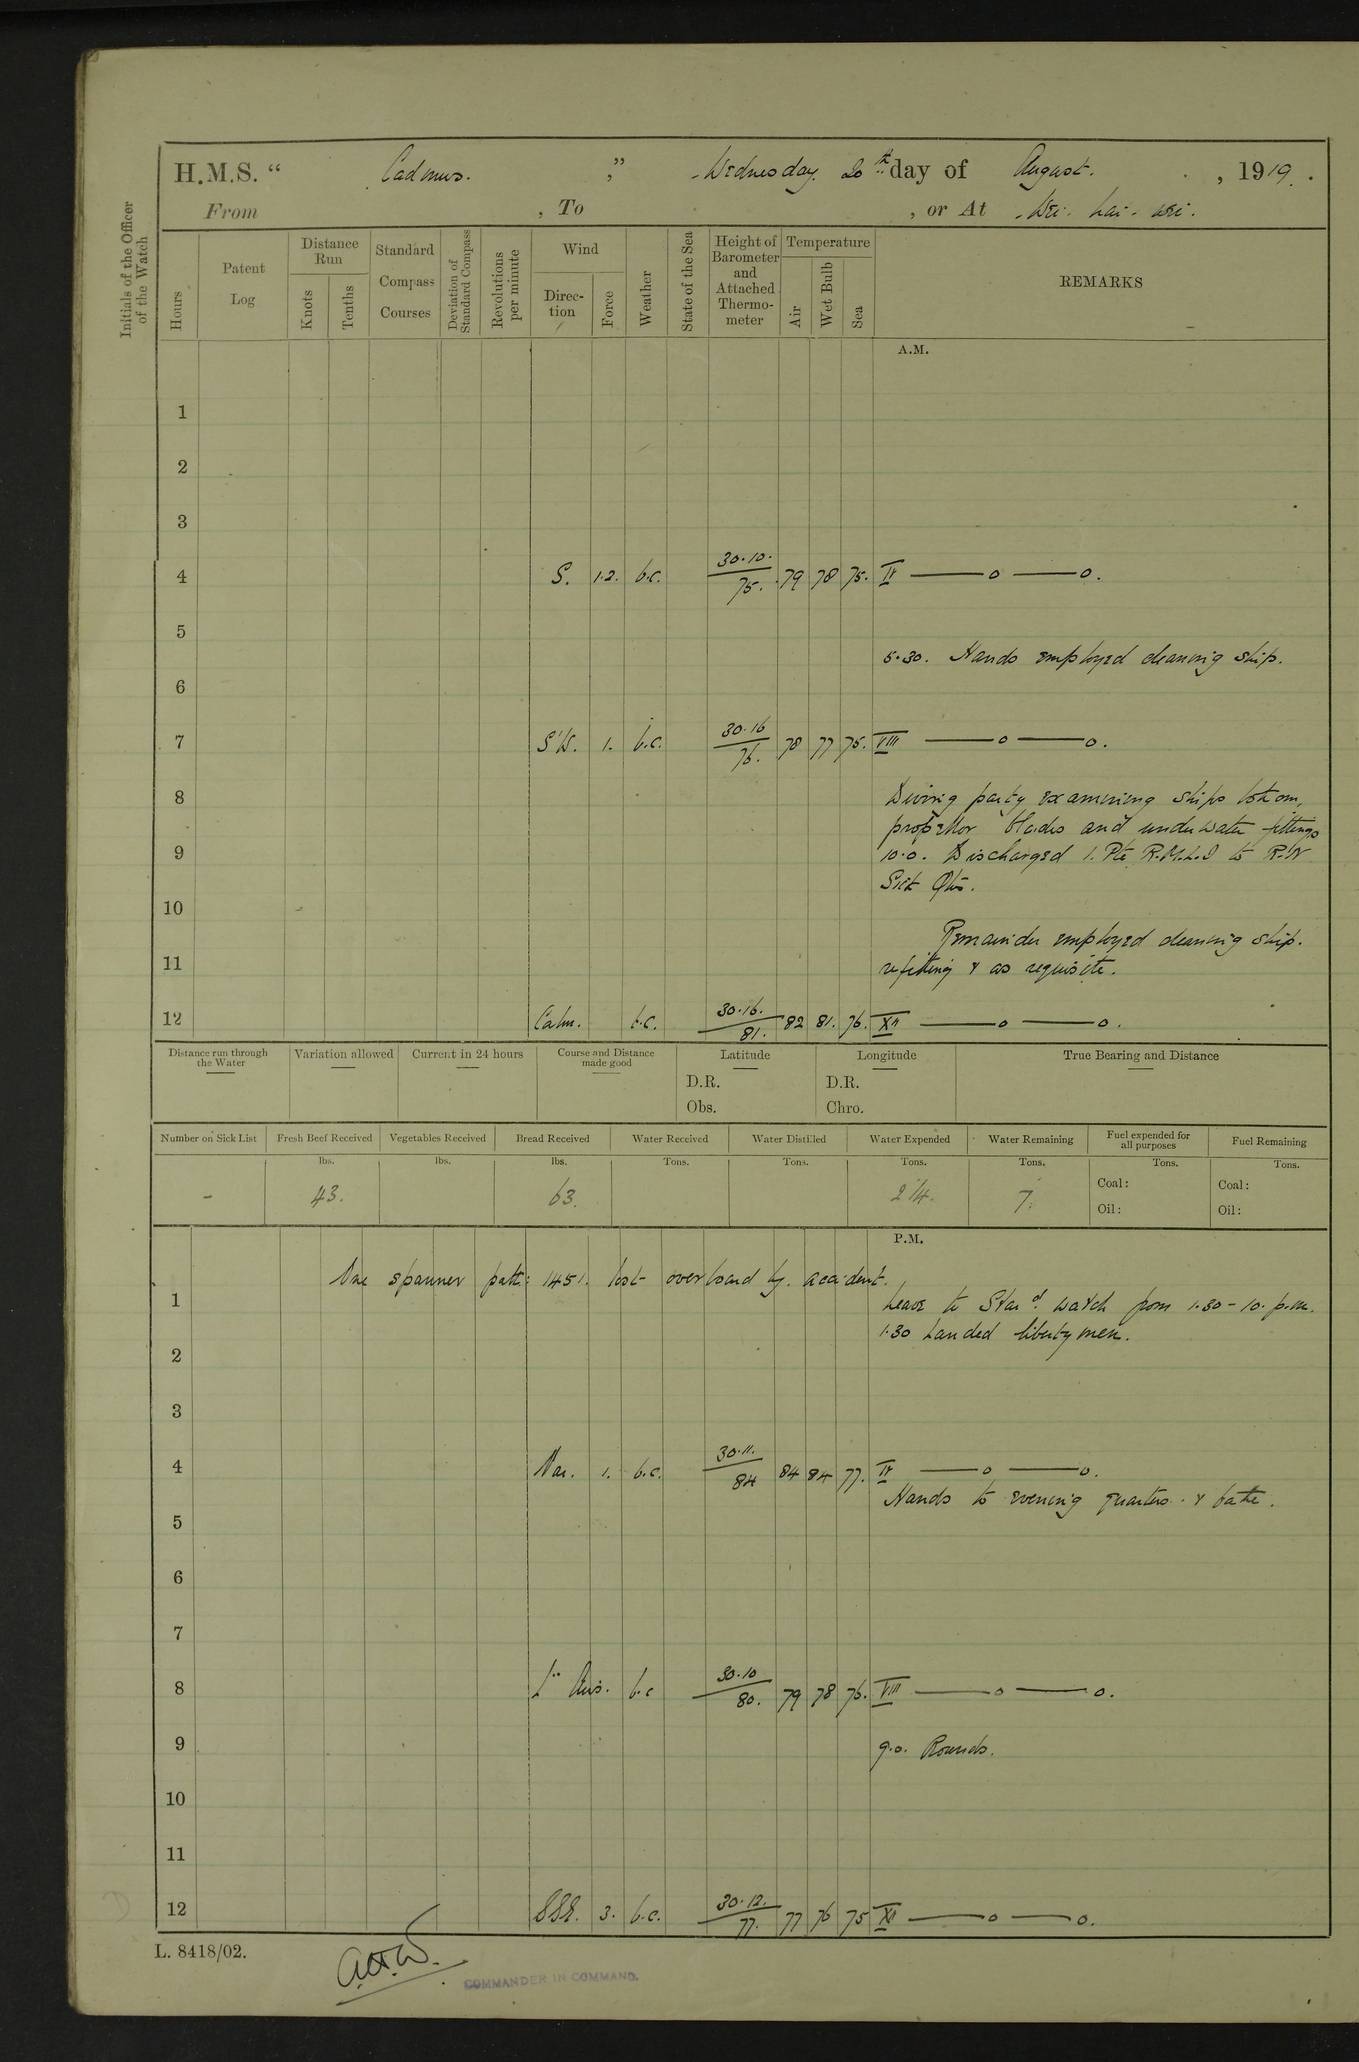 H.M.S. " Cadmus. ," Wednesday. 20th day of August. , 1919.
From , To , or At Wei-hai-wei.
Initials of the Officer of the Watch
Hours
Patent Log
Distance Run
Knots
Tenths
Standard Compass Courses
Deviation of Standard Compass
Revolutions per minute
Wind
Direction
Force
Weather
State of the Sea
Height of Barometer and Attached Thermometer
Temperature
Air
Wet Bulb
Sea
REMARKS
A.M.
1
2
3
4 S. 1.2. b.c. 30.10. 75. 79 78 75. IV ——o——o.
5
5.30. Hands employed cleaning ship.
6
7 S'W. 1. b.c. 30.16 76. 78 77 75. VIII ——o——o.
8 Diving party examining ships bottom,
propellor blades and underwater fittings
9 10.0. Discharged 1. Pte R.M.L.I to R.N
Sick Qtrs.
10
Remainder employed cleaning ship.
11 refitting & as requisite.
12 Calm. b.c. 30.16. 81. 82 81. 76. XII ——o——o.
Distance run through the Water
Variation allowed
Current in 24 hours
Course and Distance made good
Latitude
D.R.
Obs.
Longitude
D.R.
Chro.
True Bearing and Distance
Number on Sick List
Fresh Beef Received
Vegetables Received
Bread Received
Water Received
Water Distilled
Water Expended
Water Remaining
Fuel expended for all purposes
Fuel Remaining
lbs. lbs. lbs. Tons. Tons. Tons. Tons. Tons. Tons.
- 43. 63. 7.
Coal: Coal:
Oil: Oil:
P.M.
One spanner patt: 1451. lost overboard by accident.
1 Leave to Stard. watch from 1.30 - 10. p.m.
1.30 Landed liberty men.
2
3
4 Var. 1. b.c. 30.11. 84 84 84 77. IV ——o——o.
Hands to evening quarters. & bathe.
5
6
7
8 Lt. Airs. b.c 30.10 80. 79 78 76. VIII ——o——o.
9 9.0. Rounds.
10
11
12 SSE. 3. b.c. 30.12. 77. 77 76 75 XII ——o——o.
L. 8418/02.
COMMANDER IN COMMAND.